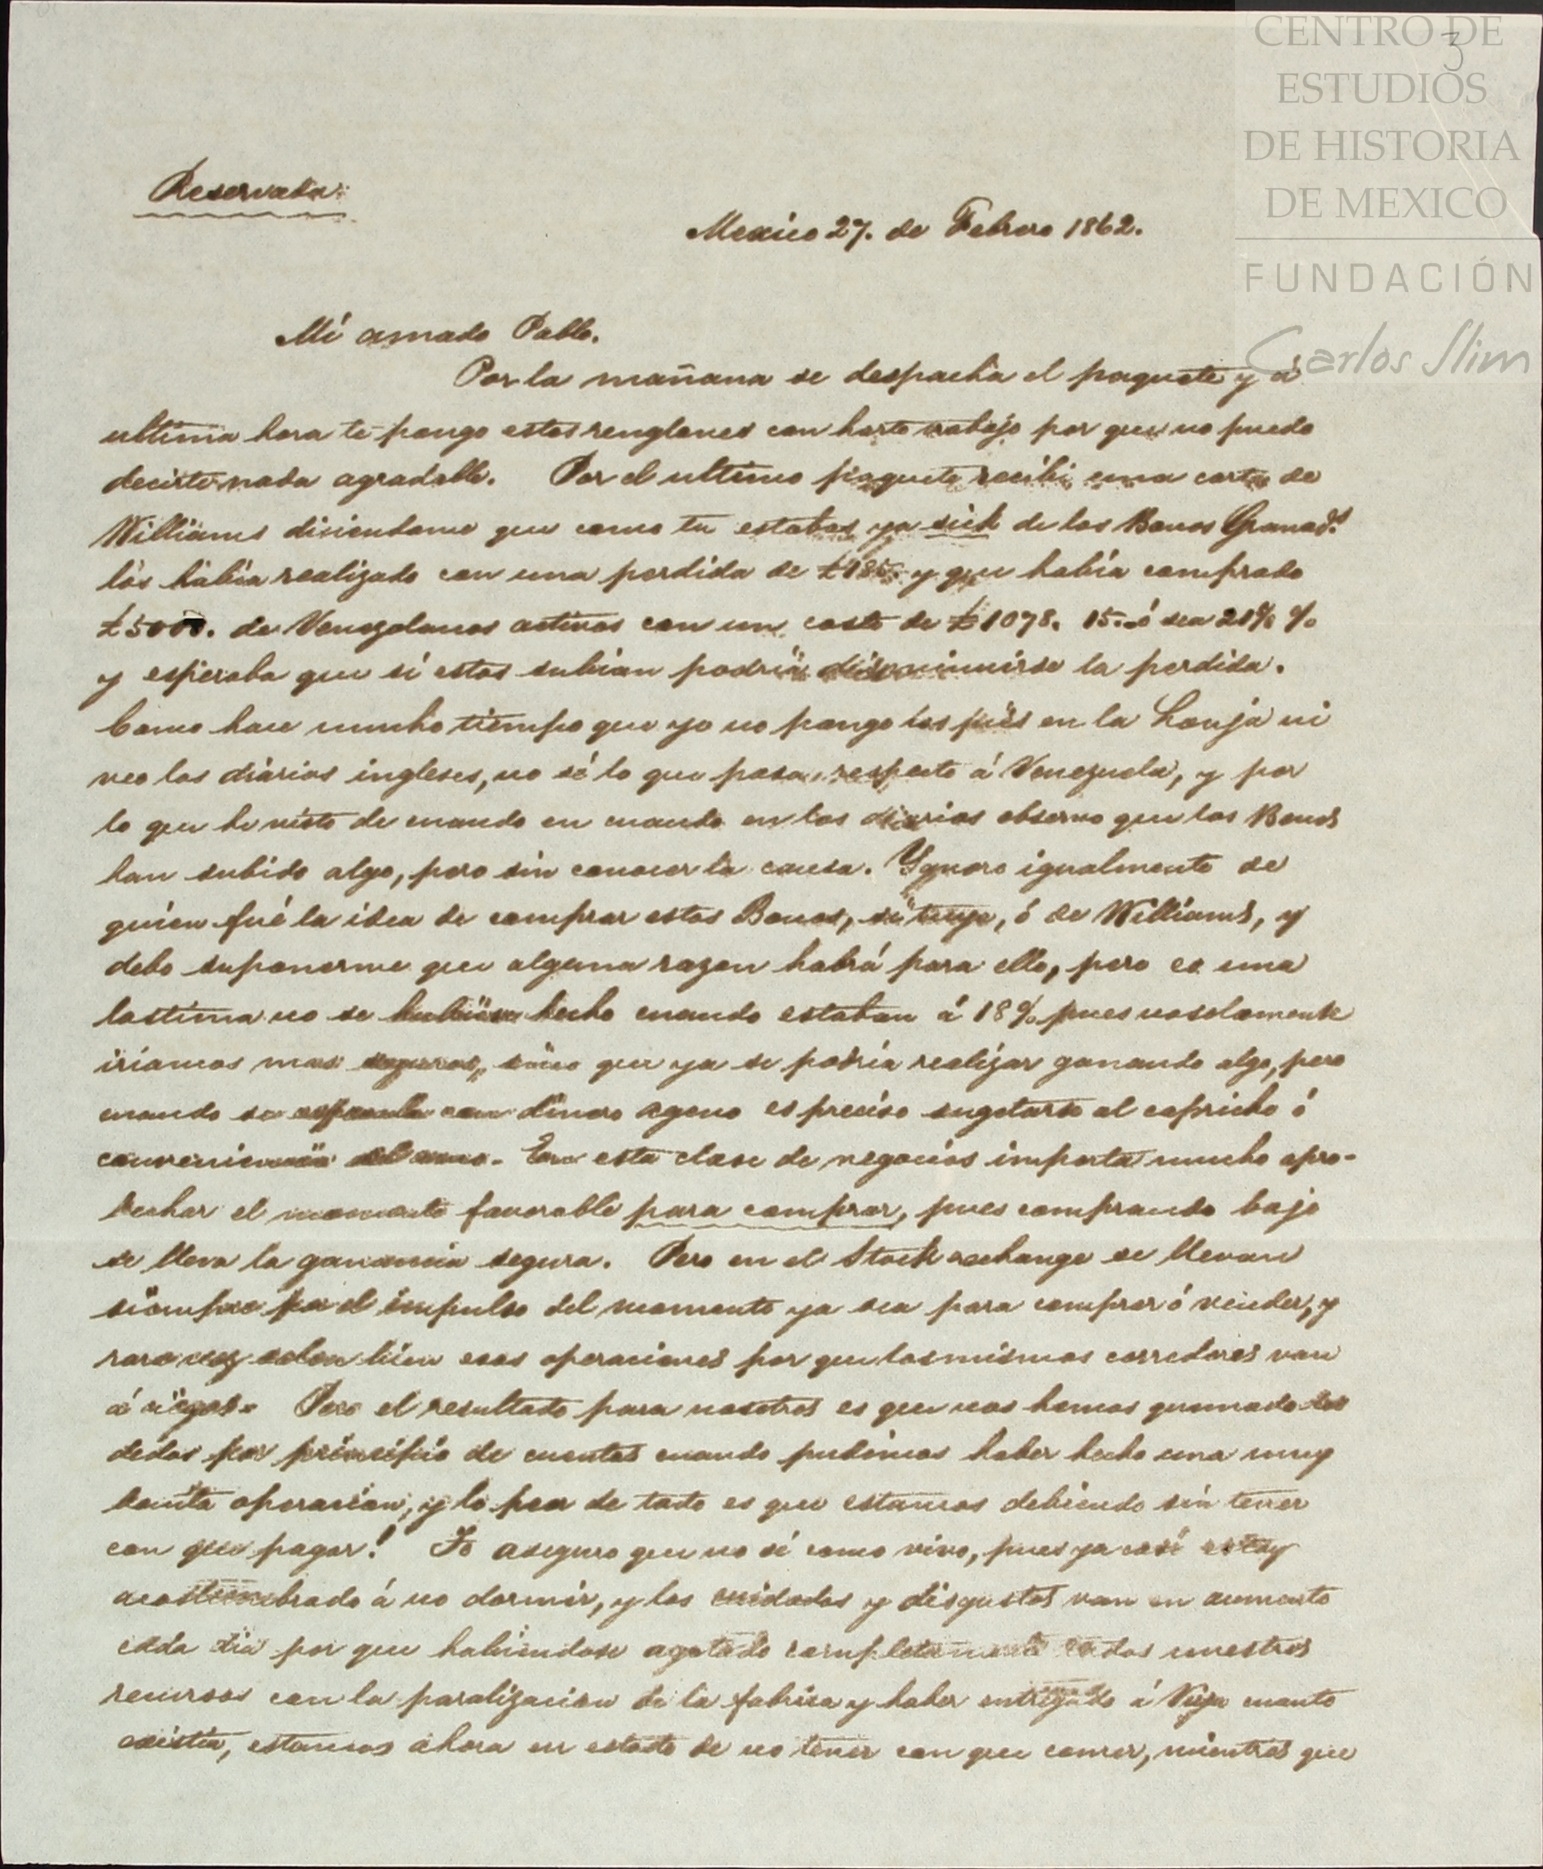 CENTRO DE
ESTUDIOS
DE HISTORIA
DE MEXICO
FUNDACIÓN
Carlos Slim
3
Reservada
Mexico 27. de Febrero 1862.
Mi amado Pablo.
Por la mañana se despacha el paquete y á
ultima hora te pongo estos renglones con harto trabajo por que no puedo
decirte nada agradable. Por el ultimo paquete recibi una carta de
Williams diciendome que como tu estabas ya sick de los Bonos Granad.s
los habia realizado con una perdida de £185. y que habia comprado
£5000. de Venezolanos activos con un costo de £1078. 15. ó sea
y esperaba que si estos subian podria disminuirse la perdida.
Como hace mucho tiempo que yo no pongo los piés en la Lonja ni
veo los diarios ingleses, no sé lo que pasa respecto á Venezuela, y por
lo que he visto de cuando en cuando en los diarios observo que los Bonos
han subido algo, pero sin conocer la causa. Ygnoro igualmente de
quien fué la idea de comprar estos Bonos, si tuya, ó de Williams, y
debo suponerme que alguna razon habrá para ello, pero es una
lastima no se hubiese hecho cuando estaban á 18% pues no solamente
iriamos mas seguros, sino que ya se podria realizar ganando algo, pero
cuando se especula con dinero ageno es preciso sugetarse al capricho ó
conveniencia del amo. En esta clase de negocios importa mucho apro-
bechar el momento favorable para comprar, pues comprando bajo
se lleva la ganancia segura. Pero en el Stock exchange se llevan
siempre por el impulso del momento ya sea para comprar ó vender, y
rara vez salen bien esas operaciones por que los mismos corredores van
á ciegas. Pero el resultado para nosotros es que nos hemos quemado los
dedos por principio de cuentas cuando pudimos haber hecho una muy
bonita operacion, y lo peor de todo es que estamos debiendo sin tener
con que pagar! Te aseguro que no sé como vivo, pues ya casi estoy
acostumbrado á no dormir, y los cuidados y disgustos van en aumento
cada dia por que habiendose agotado completamente todos nuestros
recursos con la paralizacion de la fabrica y haber entregado á cuanto
existia, estamos ahora en estado de no tener con que comer, mientras que